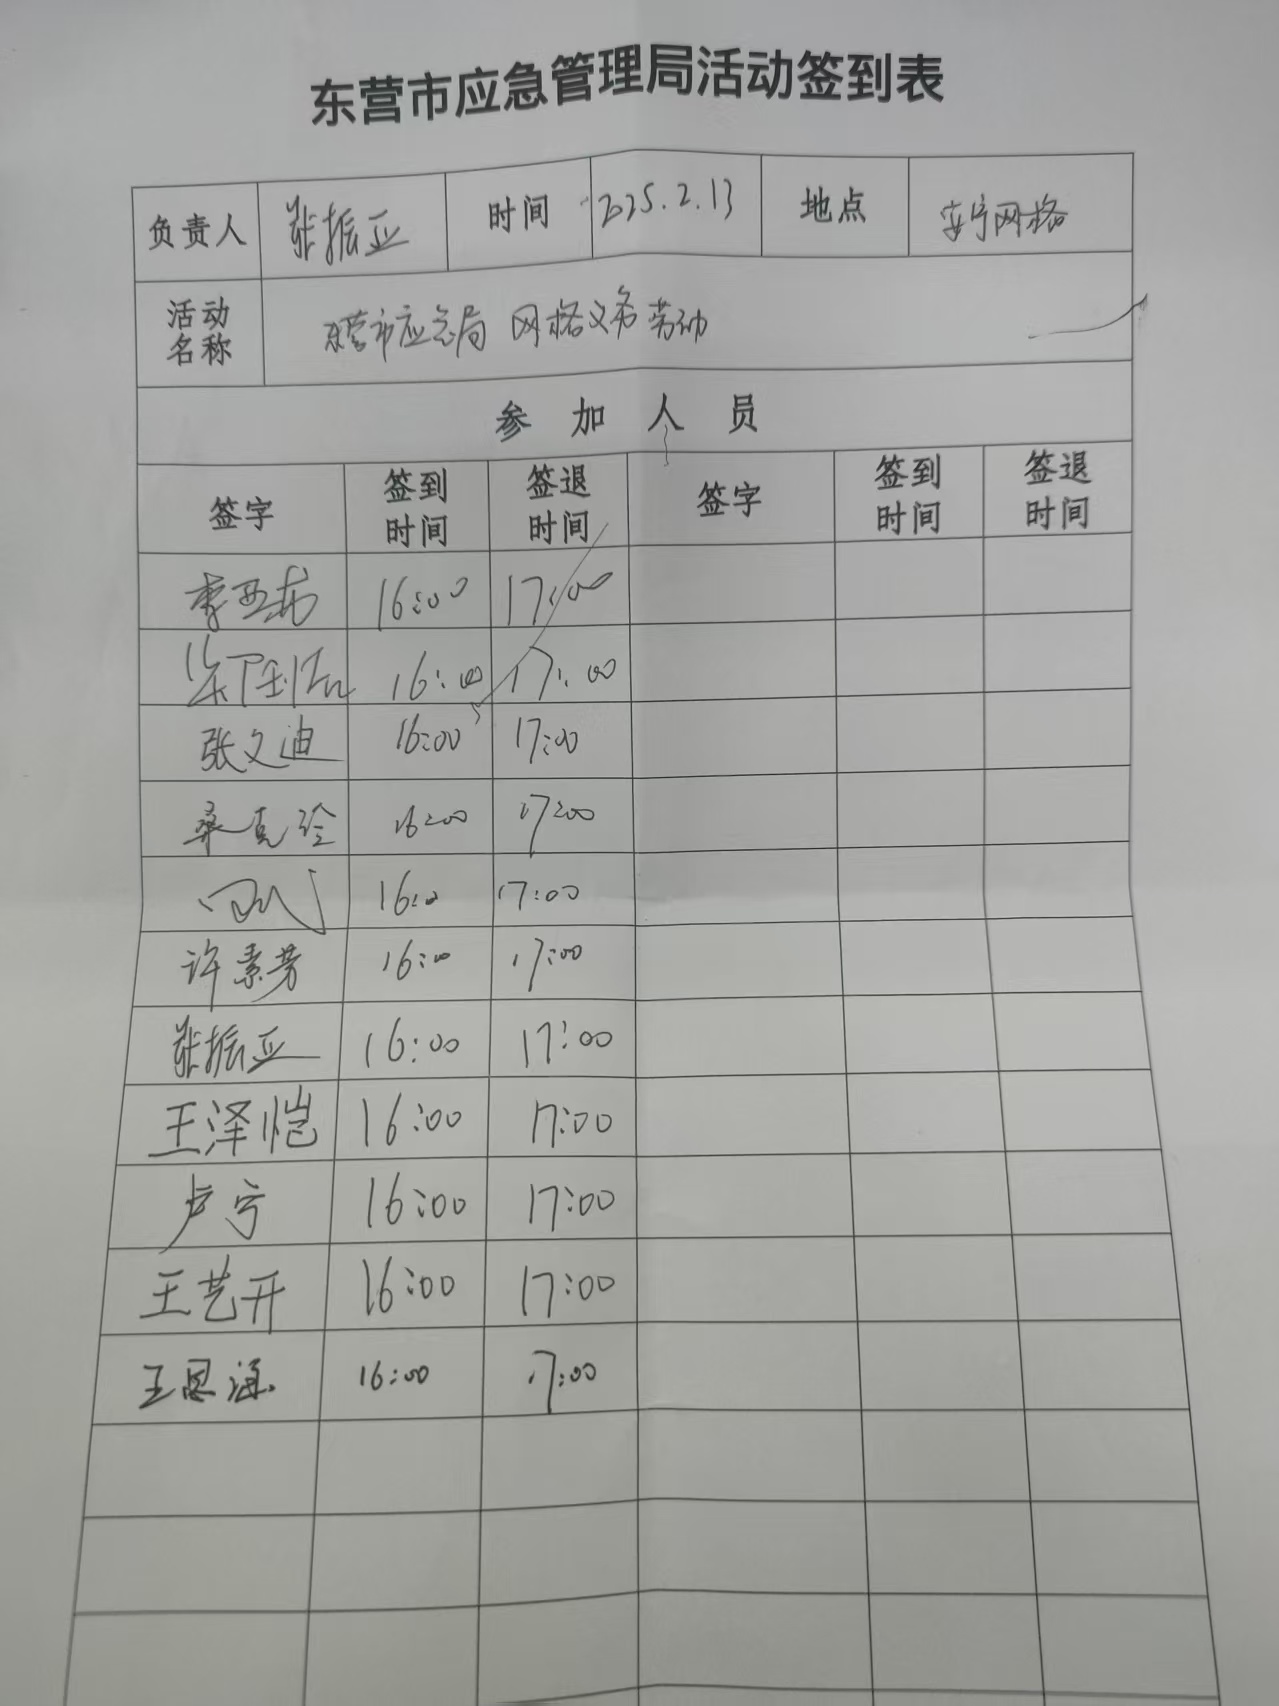 东营市应急管理局活动签到表
负责人 张振亚 时间 2025.2.13 地点 安宁网格
活动名称 东营市应急局 网格义务劳动
参加人员
签字 签到时间 签退时间 签字 签到时间 签退时间
李亚茹 16:00 17:00
16:00 17:00
张文迪 16:00 17:00
桑克玲 16:00 17:00
16:00 17:00
许素芳 16:00 17:00
张振亚 16:00 17:00
王泽恺 16:00 17:00
卢宁 16:00 17:00
王艺开 16:00 17:00
王恩涵 16:00 17:00